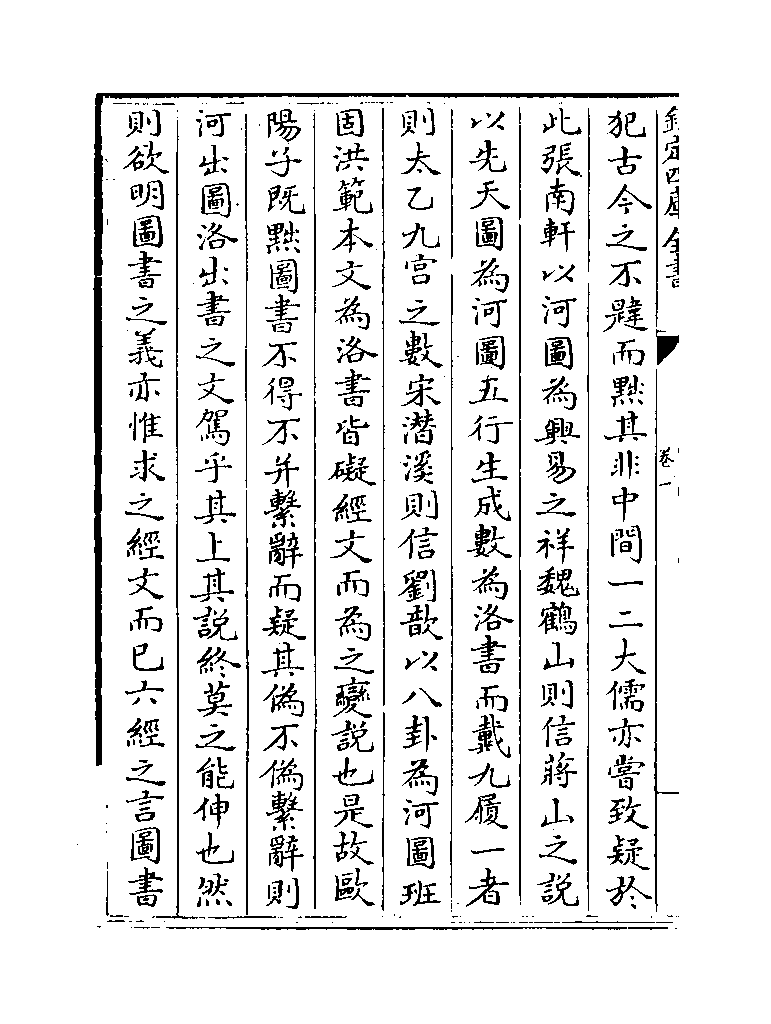 欽定四庫全書
卷一
犯古今之不韙而黜其非中間一二大儒亦嘗致疑於
此張南軒以河圖為興易之祥魏鶴山則信蔣山之說
以先天圖為河圖五行生成數為洛書而戴九履一者
則太乙九宫之數宋潛溪則信劉歆以八卦為河圖班
固洪範本文為洛書皆礙經文而為之變說也是故歐
陽子既黜圖書不得不并繫辭而疑其偽不偽繫辭則
河出圖洛出書之文駕乎其上其説終莫之能伸也然
則欲明圖書之義亦惟求之經文而已六經之言圖書